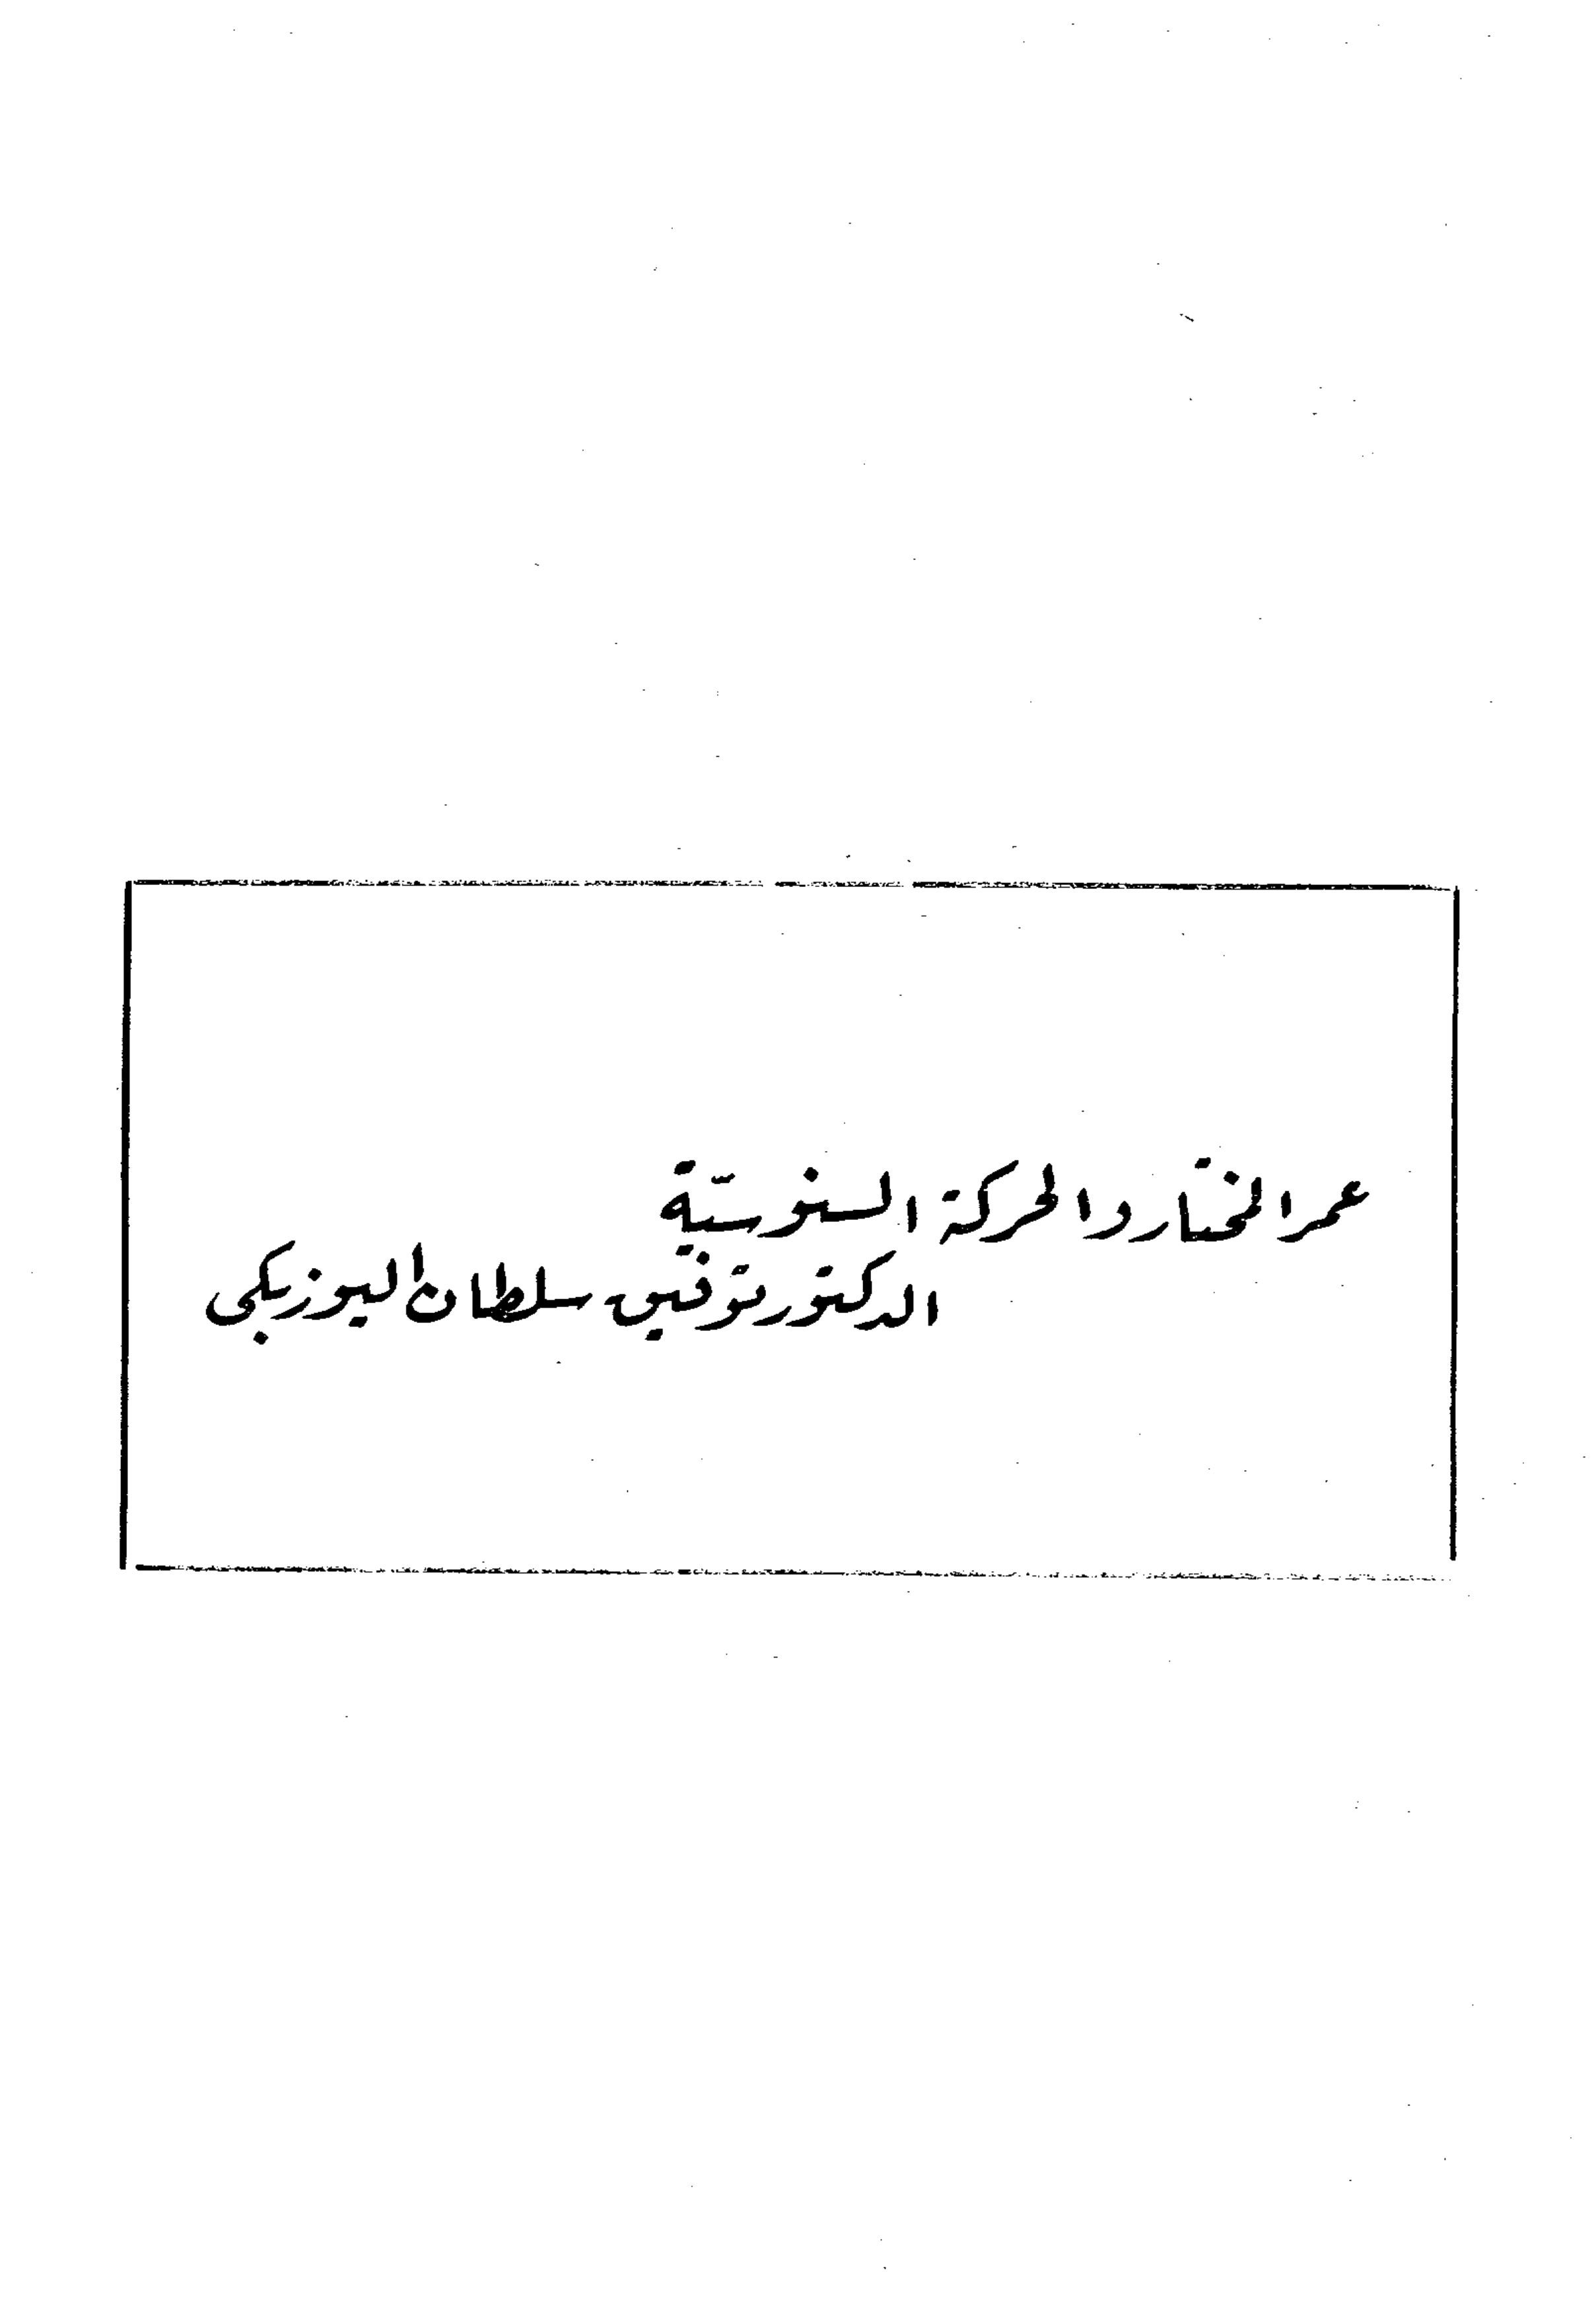 عمر المختار والحركة السنوسيّة
الدكتور توفيق سلطان اليوزبكي